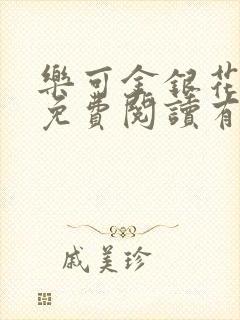 樂可金銀花
免費閱讀有
戚美珍